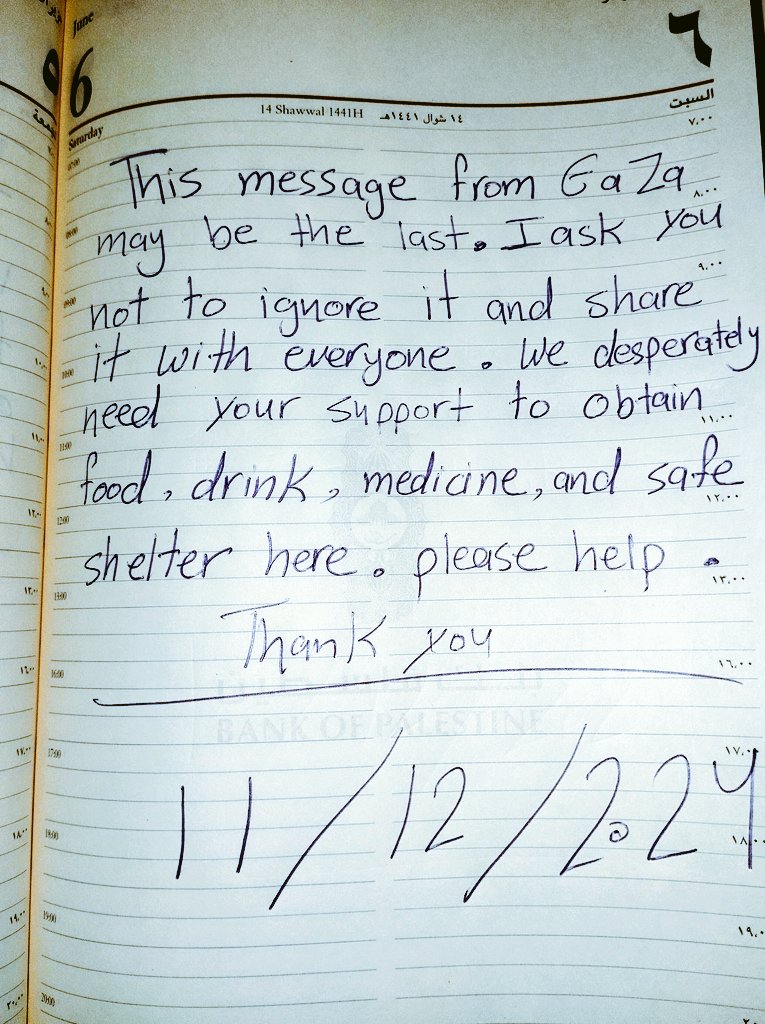 June
6
٦
Saturday
14 Shawwal 1441H
١٤ شوال ١٤٤١هـ
السبت
This message from GaZa
may be the last. I ask you
not to ignore it and share
it with everyone. We desperately
need your support to obtain
food, drink, medicine, and safe
shelter here. please help.
Thank you
BANK OF PALESTINE
11/12/2024
07:00
٧,٠٠
٨,٠٠
09:00
٩,٠٠
10:00
11:00
١١,٠٠
12:00
١٢,٠٠
13:00
١٣,٠٠
16:00
١٦,٠٠
17:00
١٧,٠٠
18:00
١٨,٠٠
19:00
١٩,٠٠
20:00